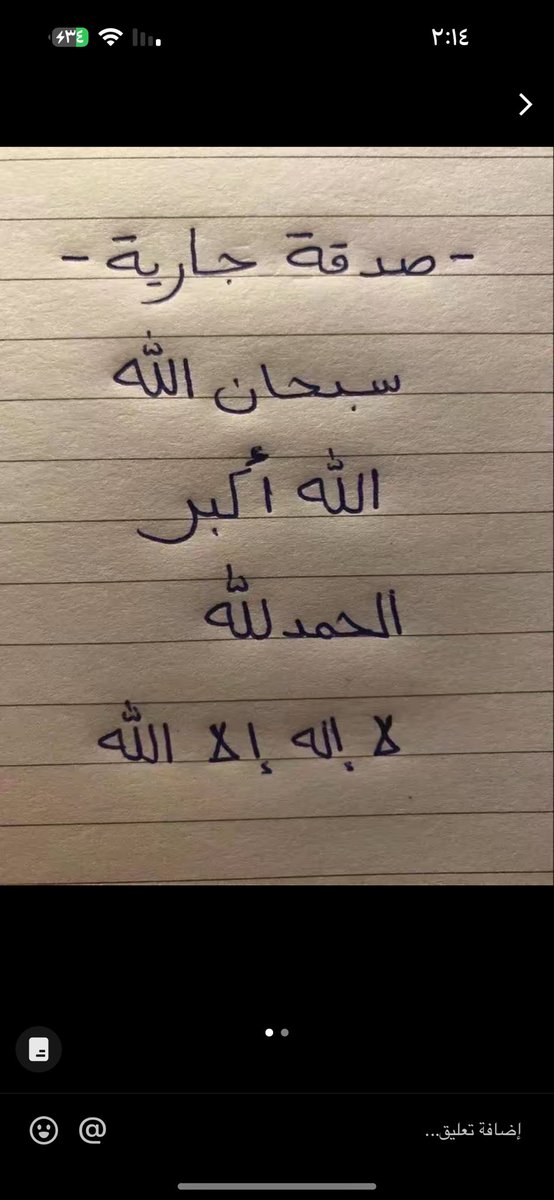 ٢:١٤
٣٤
- صدقة جارية -
سبحان الله
الله أكبر
الحمدلله
لا إله إلا الله
إضافة تعليق...
@